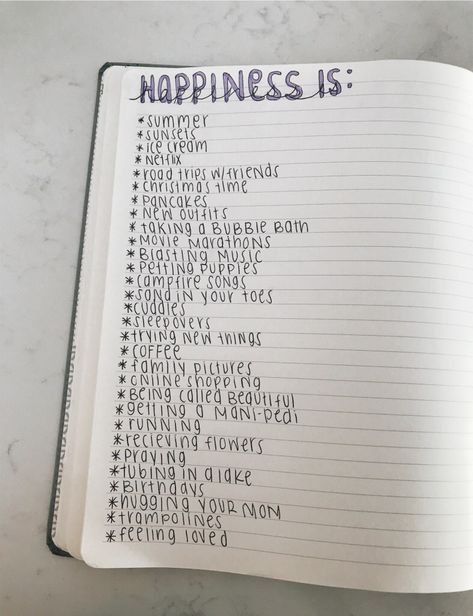 HAPPINESS IS:
*summer
*sunsets
*ice cream
*Netflix
*road trips w/friends
*christmas time
*pancakes
*new outfits
*taking a BUBBle Bath
*movie marathons
*Blasting music
*petting puppies
*campfire songs
*sand in your toes
*cuddles
*sleepovers
*trying new things
*coffee
*family pictures
*online shopping
*Being called Beautiful
*getting a mani-pedi
*running
*recieving flowers
*praying
*tubing in a lake
*Birthdays
*hugging your mom
*trampolines
*feeling loved